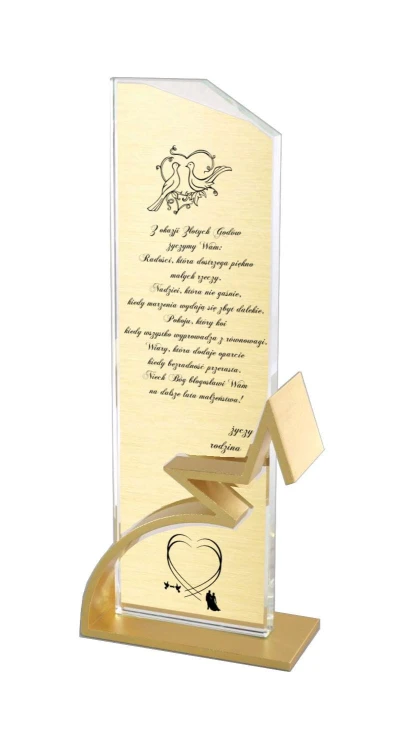 Z okazji Złotych Godów
życzymy Wam:
Radości, która dostrzega piękno
małych rzeczy.
Nadziei, która nie gaśnie,
kiedy marzenia wydają się zbyt dalekie.
Pokoju, który koi
kiedy wszystko wyprowadza z równowagi.
Wiary, która dodaje oparcie
kiedy bezradność przerasta.
Niech Bóg błogosławi Wam
na dalsze lata małżeństwa!
życzy
rodzina